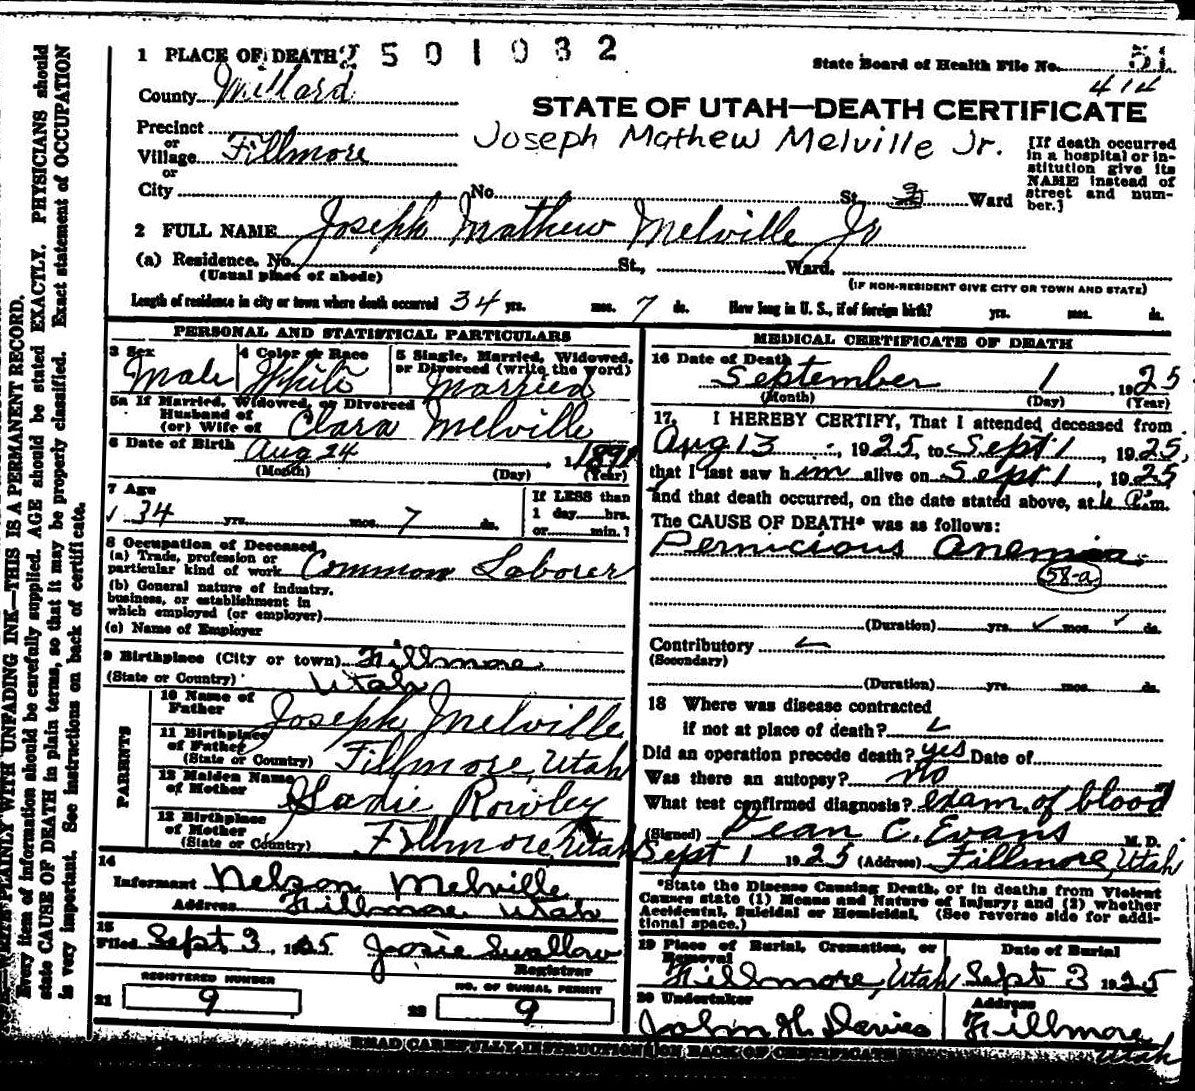 1 PLACE OF DEATH 2501032
State Board of Health File No. 51
414
County Millard
STATE OF UTAH—DEATH CERTIFICATE
Precinct
or
Village Fillmore
or
City No. St. Ward
Joseph Mathew Melville Jr.
[If death occurred
in a hospital or in-
stitution give its
NAME instead of
street and num-
ber.]
2 FULL NAME Joseph Mathew Melville Jr
(a) Residence. No. St., Ward.
(Usual place of abode)
(IF NON-RESIDENT GIVE CITY OR TOWN AND STATE)
Length of residence in city or town where death occurred 34 yrs. mos. 7 ds. How long in U. S., if of foreign birth? yrs. mos. ds.
PERSONAL AND STATISTICAL PARTICULARS
3 Sex
Male
4 Color or Race
White
5 Single, Married, Widowed,
or Divorced (write the word)
Married
5a If Married, Widowed, or Divorced
Husband of
(or) Wife of Clara Melville
6 Date of Birth Aug 24, 1891
(Month) (Day) (Year)
7 Age
34 yrs. mos. 7 ds.
If LESS than
1 day hrs.
or min.?
8 Occupation of Deceased
(a) Trade, profession or
particular kind of work Common Laborer
(b) General nature of industry,
business, or establishment in
which employed (or employer)
(c) Name of Employer
9 Birthplace (City or town) Fillmore
(State or Country) Utah
PARENTS
10 Name of
Father Joseph Melville
11 Birthplace
of Father
(State or Country) Fillmore, Utah
12 Maiden Name
of Mother Sadie Rowley
13 Birthplace
of Mother
(State or Country) Fillmore, Utah
14
Informant Nelson Melville
Address Fillmore Utah
15
Filed Sept 3, 1925 Josie Swallow
Registrar
REGISTERED NUMBER
21 9
NO. OF BURIAL PERMIT
22 9
MEDICAL CERTIFICATE OF DEATH
16 Date of Death
September 1, 1925
(Month) (Day) (Year)
17. I HEREBY CERTIFY, That I attended deceased from
Aug 13, 1925, to Sept 1, 1925,
that I last saw him alive on Sept 1, 1925
and that death occurred, on the date stated above, at P.m.
The CAUSE OF DEATH* was as follows:
Pernicious Anemia
58-a
(Duration) yrs. mos. ds.
Contributory
(Secondary)
(Duration) yrs. mos. ds.
18 Where was disease contracted
if not at place of death?
Did an operation precede death? yes Date of
Was there an autopsy? no
What test confirmed diagnosis? exam. of blood
(Signed) Dean C. Evans M. D.
Sept 1 1925 (Address) Fillmore, Utah
*State the Disease Causing Death, or in deaths from Violent
Causes state (1) Means and Nature of Injury; and (2) whether
Accidental, Suicidal or Homicidal. (See reverse side for addi-
tional space.)
19 Place of Burial, Cremation, or
Removal
Date of Burial
Fillmore, Utah Sept 3 1925
20 Undertaker
Address
John H. Davies Fillmore
Utah
READ CAREFULLY INSTRUCTION ON BACK OF CERTIFICATE
PLAINLY WITH UNFADING INK—THIS IS A PERMANENT RECORD.
Every item of information should be carefully supplied. AGE should be stated EXACTLY. PHYSICIANS should
state CAUSE OF DEATH in plain terms, so that it may be properly classified. Exact statement of OCCUPATION
is very important. See instructions on back of certificate.